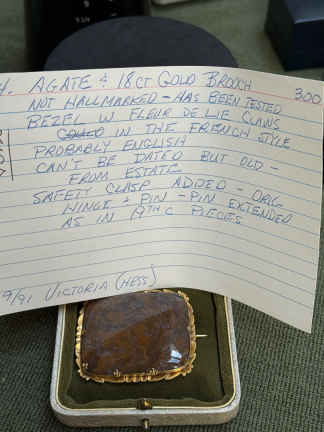 4. AGATE & 18CT GOLD BROOCH 300
NOT HALLMARKED - HAS BEEN TESTED
BEZEL W FLEUR DE LIE CLAWS
IN THE FRENCH STYLE
PROBABLY ENGLISH
CAN'T BE DATED BUT OLD -
FROM ESTATE
SAFETY CLASP ADDED - ORIG
HINGE & PIN - PIN EXTENDED
AS IN 19TH C PIECES
9/91 VICTORIA (HESS)